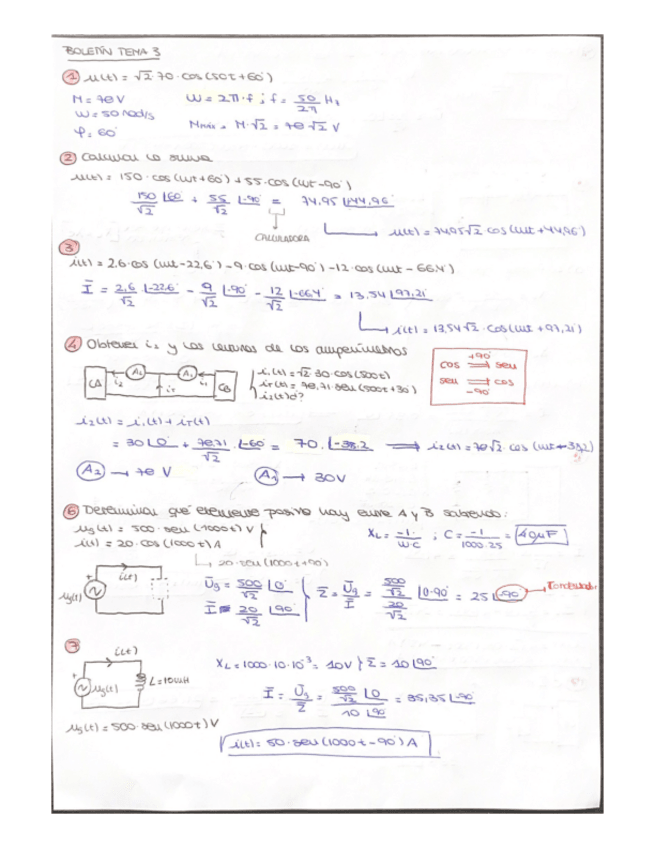 BOLETÍN TEMA 3
① u(t) = √2·70·cos(50t+60°)
M = 70V
ω = 50 rad/s
φ = 60°
ω = 2π·f ; f = 50/2π Hz
Mmáx = M·√2 = 70√2 V
② Calcular la suma
u(t) = 150·cos(ωt+60°) + 55·cos(ωt-90°)
150/√2 ∟60° + 55/√2 ∟-90° = 74,95 ∟44,96°
CALCULADORA
u(t) = 74,95√2 cos(ωt+44,96°)
③
i(t) = 2,6·cos(ωt-22,6°) - 9·cos(ωt-90°) - 12·cos(ωt-66,4°)
Ī = 2,6/√2 ∟-22,6° - 9/√2 ∟-90° - 12/√2 ∟-66,4° = 13,54 ∟97,21°
i(t) = 13,54√2·cos(ωt+97,21°)
④ Obtener i₂ y las lecturas de los amperímetros
CA i₂ A₂ iT A₁ i₁ CB
i₁(t) = √2·30·cos(500t)
iT(t) = 78,71·sen(500t+30°)
i₂(t)?
cos +90° ⟹ sen
sen ⟹ cos -90°
i₂(t) = i₁(t) + iT(t)
= 30∟0° + 78,71/√2·∟-60° = 70·∟-38,2 ⟹ i₂(t) = 70√2·cos(ωt-38,2)
A₂ → 70 V
A₁ → 30V
⑥ Determinar qué elemento pasivo hay entre A y B sabiendo:
ug(t) = 500·sen(1000t) V
i(t) = 20·cos(1000t) A
20·sen(1000t+90)
XL = -1/ω·C ; C = -1/1000·25 = 40μF
+ i(t) ug(t)
Ūg = 500/√2 ∟0°
Ī = 20/√2 ∟90°
Z̄ = Ūg/Ī = 500/√2 / 20/√2 ∟0-90° = 25∟-90° → Condensador
⑦
i(t)
+ ug(t) L=10mH
XL = 1000·10·10⁻³ = 10V } Z̄ = 10∟90°
Ī = Ūg/Z̄ = 500/√2 ∟0 / 10∟90° = 35,35∟-90°
ug(t) = 500·sen(1000t) V
i(t) = 50·sen(1000t-90°) A